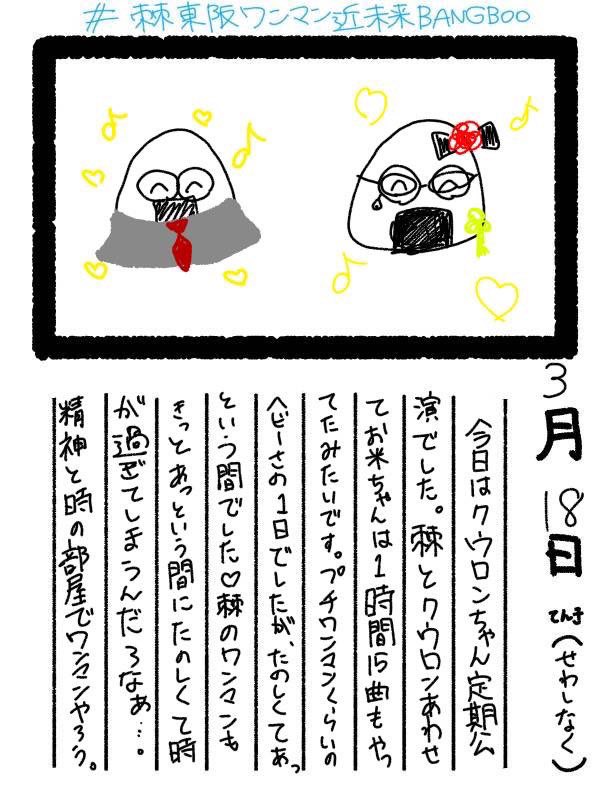 #棘東阪ワンマン近未来BANGBOO
3月18日 てんき(せわしなく)
今日はクウロンちゃん定期公
演でした。棘とクウロンあわせ
てお米ちゃんは1時間15曲もやっ
てたみたいです。プチワンマンくらいの
ヘビーさの1日でしたが、たのしくてあっ
という間でした♡棘のワンマンも
きっとあっという間にたのしくて時
が過ぎてしまうんだろなぁ…。
精神と時の部屋でワンマンやろう。